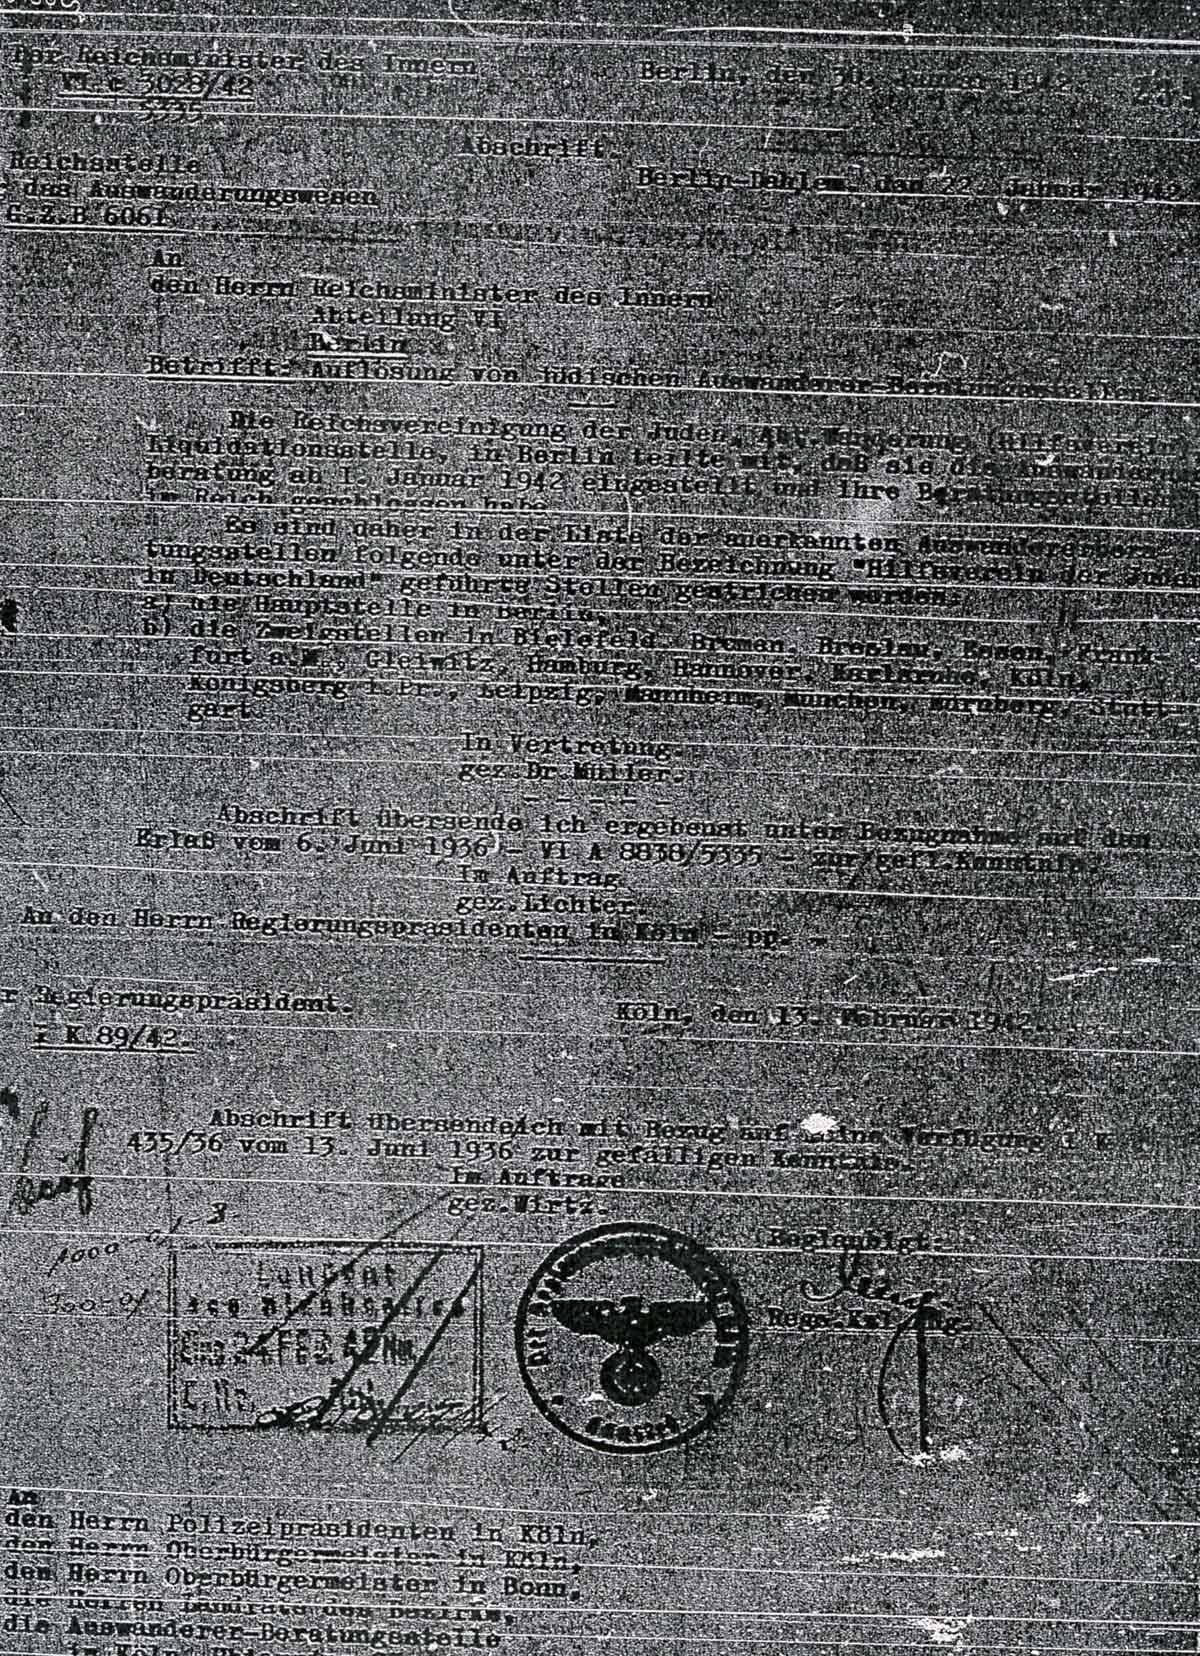 Der Reichsminister des Innern
Berlin, den 30. Januar 1942
VI c 3028/42
5335
Abschrift.
Reichsstelle
das Auswanderungswesen
Berlin-Dahlem, den 22. Januar 1942
G.Z.B 6061
An
den Herrn Reichsminister des Innern
Abteilung VI
Berlin
Betrifft: Auflösung von jüdischen Auswanderer-Beratungsstellen
Die Reichsvereinigung der Juden, Abt.Wanderung (Hilfsverein)
Liquidationsstelle, in Berlin teilte mit, daß sie die Auswanderungs
beratung ab 1. Januar 1942 eingestellt und ihre Beratungsstellen
im Reich geschlossen habe
Es sind daher in der Liste der anerkannten Auswandererbera
tungsstellen folgende unter der Bezeichnung "Hilfsverein der Juden
in Deutschland" geführte Stellen gestrichen worden:
a) die Hauptstelle in Berlin,
b) die Zweigstellen in Bielefeld, Bremen, Breslau, Essen, Frank-
furt a.M., Gleiwitz, Hamburg, Hannover, Karlsruhe, Köln,
Königsberg i.Pr., Leipzig, Mannheim, München, Nürnberg, Stutt-
gart.
In Vertretung.
gez.Dr.Müller.
Abschrift übersende ich ergebenst unter Bezugnahme auf den
Erlaß vom 6. Juni 1936 - VI A 8838/5335 - zur gefl.Kenntnis.
Im Auftrag
gez.Lichter.
An den Herrn Regierungspräsidenten in Köln - pp. -
r Regierungspräsident.
Köln, den 13. Februar 1942.
I K 89/42.
Abschrift übersende ich mit Bezug auf meine Verfügung I K
435/36 vom 13. Juni 1936 zur gefälligen Kenntnis.
Im Auftrage
gez.Wirtz.
Beglaubigt:
Landrat
Eing. 24. FEB. 42 Nm.
Regs.Kzl.Ang.
An
den Herrn Polizeipräsidenten in Köln,
den Herrn Oberbürgermeister in Köln,
den Herrn Oberbürgermeister in Bonn,
die Herren Landräte des Bezirks,
die Auswanderer-Beratungsstelle
in Köln